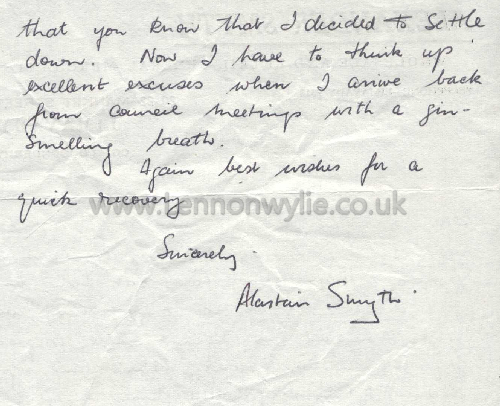 that you know that I decided to settle
down. Now I have to think up
excellent excuses when I arrive back
from council meetings with a gin-
smelling breath.
Again best wishes for a
quick recovery
www.lennonwylie.co.uk
Sincerely.
Alastair Smyth.